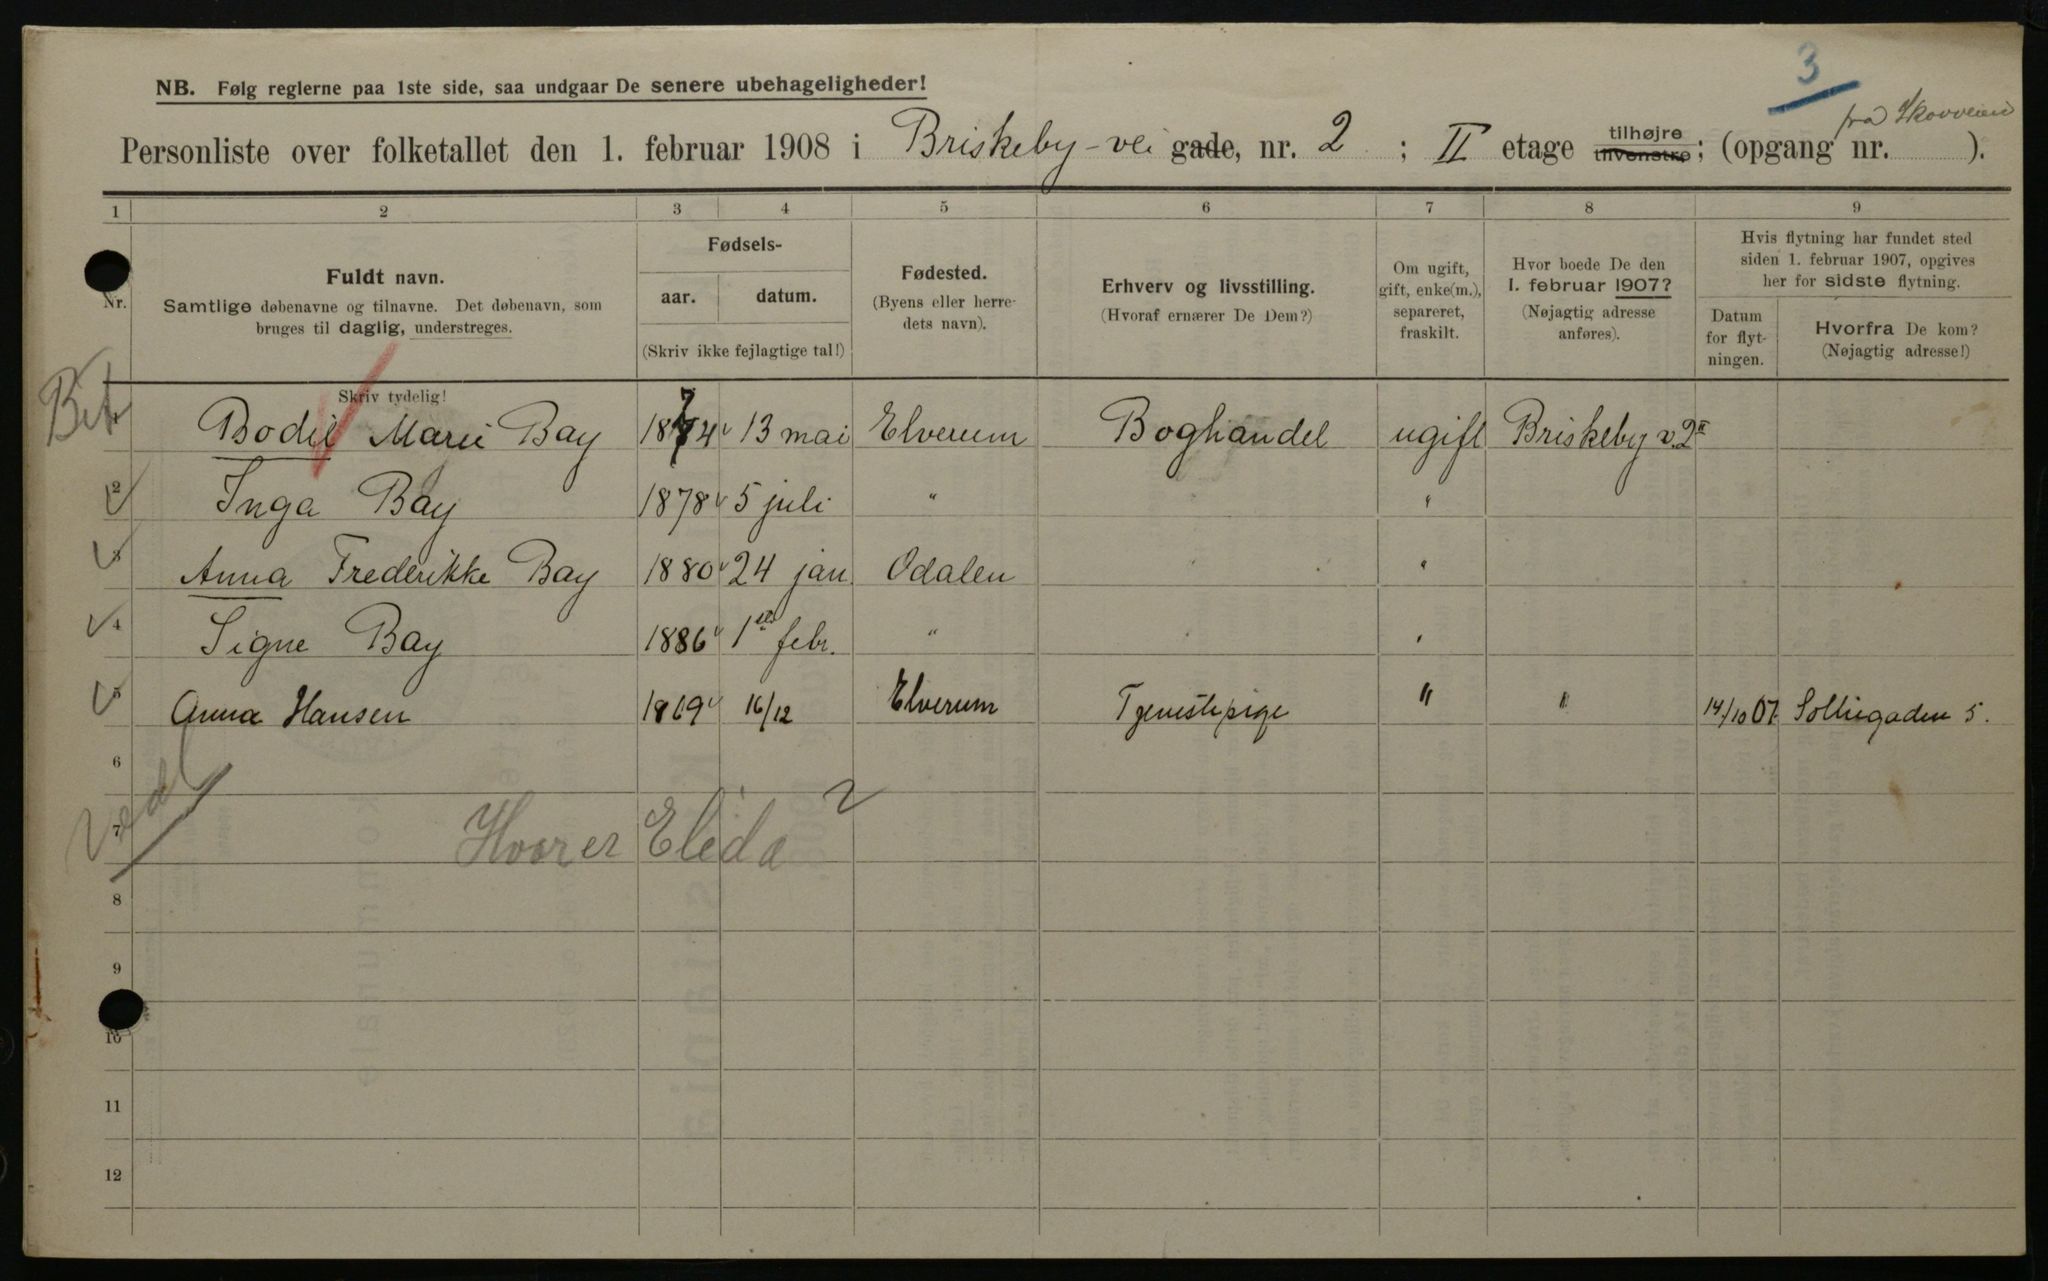 3
NB. Følg reglerne paa 1ste side, saa undgaar De senere ubehageligheder!
fra Skovveien
Personliste over folketallet den 1. februar 1908 i Briskeby-vei gade, nr. 2 ; II etage tilhøjre tilvenstre; (opgang nr. ).
1 2 3 4 5 6 7 8 9
Nr.
Fuldt navn.
Samtlige døbenavne og tilnavne. Det døbenavn, som
bruges til daglig, understreges.
Skriv tydelig!
Fødsels-
aar. datum.
(Skriv ikke fejlagtige tal!)
Fødested.
(Byens eller herre-
dets navn).
Erhverv og livsstilling.
(Hvoraf ernærer De Dem?)
Om ugift,
gift, enke(m.),
separeret,
fraskilt.
Hvor boede De den
1. februar 1907?
(Nøjagtig adresse
anføres).
Hvis flytning har fundet sted
siden 1. februar 1907, opgives
her for sidste flytning.
Datum
for flyt-
ningen.
Hvorfra De kom?
(Nøjagtig adresse!)
1 Bodil Marie Bay 1874 13 mai Elverum Boghandel ugift Briskeby v. 2 II
2 Inga Bay 1878 5 juli " "
3 Anna Frederikke Bay 1880 24 jan. Odalen " "
4 Signe Bay 1886 1ste febr. " " "
5 Anna Hansen 1869 16/12 Elverum Tjenestepige " " 14/10 07. Solliegaden 5.
6
7 Hvor er Elida
8
9
10
11
12